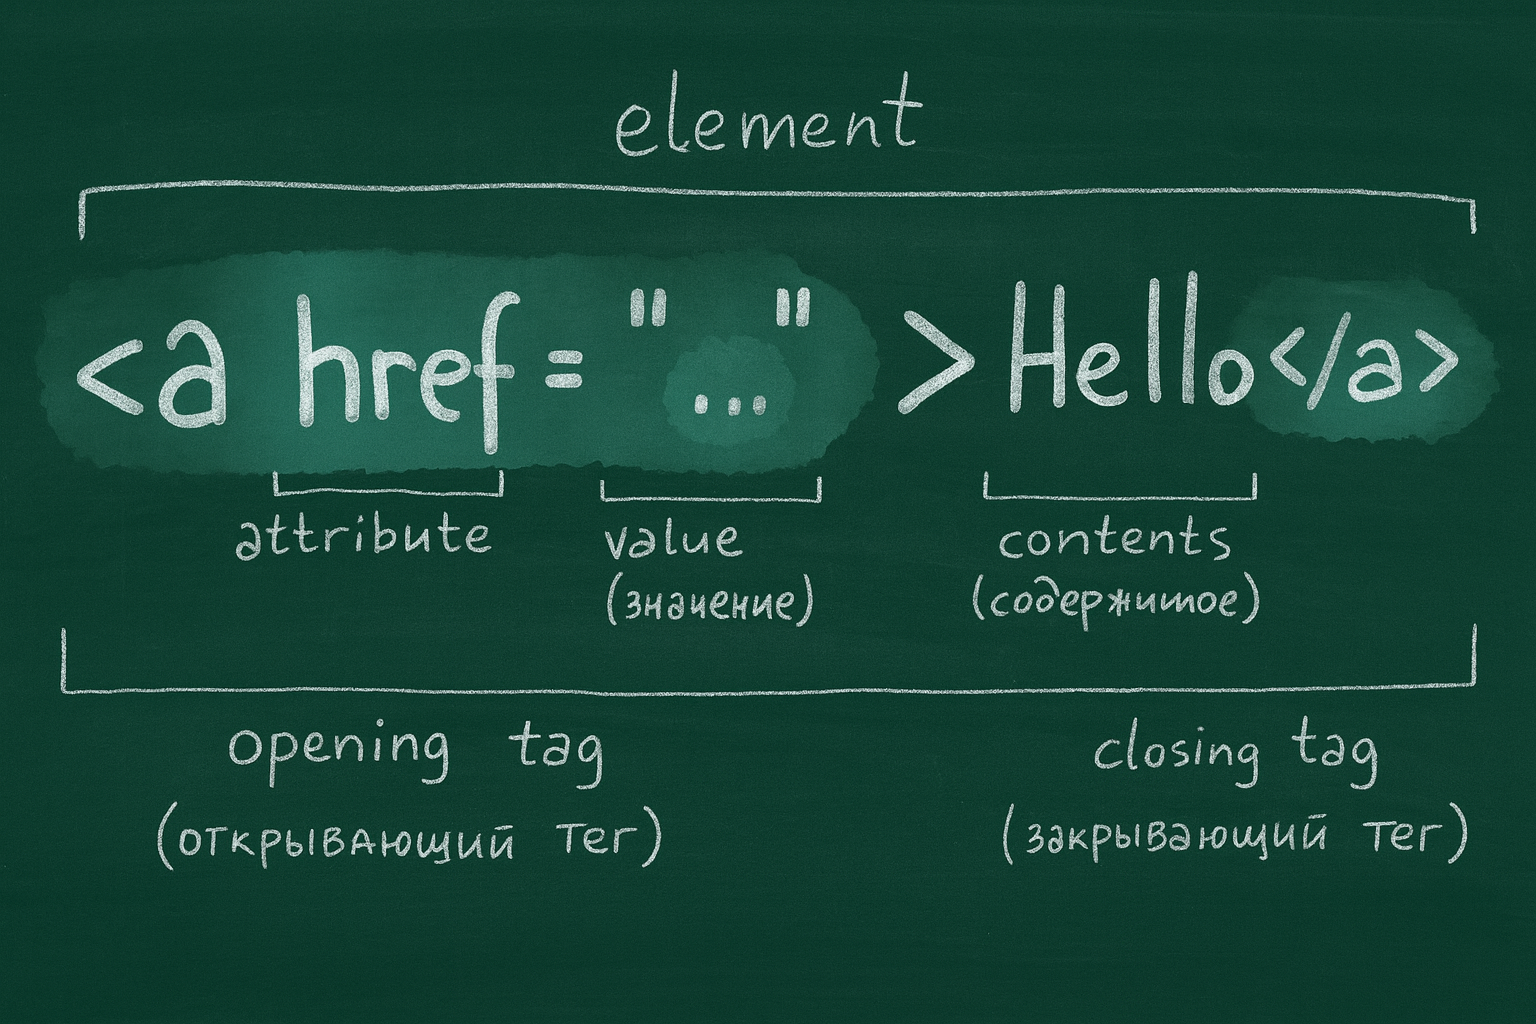 element
<a href="..." >Hello</a>
attribute value contents
(значение) (содержимое)
opening tag closing tag
(открывающий тег) (закрывающий тег)